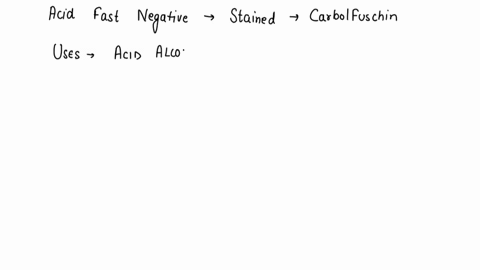 Acid Fast Negative → Stained → CarbolFuschin
Uses → ACID ALCO